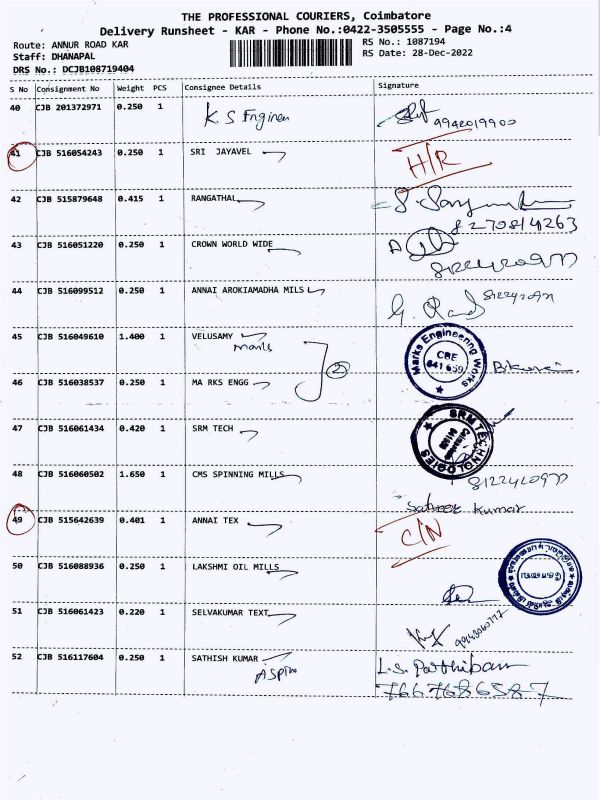 THE PROFESSIONAL COURIERS, Coimbatore
Delivery Runsheet - KAR - Phone No.:0422-3505555 - Page No.:4
Route: ANNUR ROAD KAR
RS No.: 1087194
Staff: DHANAPAL
RS Date: 28-Dec-2022
DRS No.: DCJB108719404
S No Consignment No Weight PCS Consignee Details Signature
40 CJB 201372971 0.250 1 K.S Enginen 9942019900
41 CJB 516054243 0.250 1 SRI JAYAVEL H/R
42 CJB 515879648 0.415 1 RANGATHAL
8270814263
43 CJB 516051220 0.250 1 CROWN WORLD WIDE
44 CJB 516099512 0.250 1 ANNAI AROKIAMADHA MILS
45 CJB 516049610 1.400 1 VELUSAMY
Marks Engineering Works
CBE
641 659
2
46 CJB 516038537 0.250 1 MA RKS ENGG
47 CJB 516061434 0.420 1 SRM TECH
SRM TECHNOLOGIES
48 CJB 516060502 1.650 1 CMS SPINNING MILLS
Kumar
49 CJB 515642639 0.401 1 ANNAI TEX C/N
50 CJB 516088936 0.250 1 LAKSHMI OIL MILLS
51 CJB 516061423 0.220 1 SELVAKUMAR TEXT
52 CJB 516117604 0.250 1 SATHISH KUMAR L.S. Parthiban
7667686587